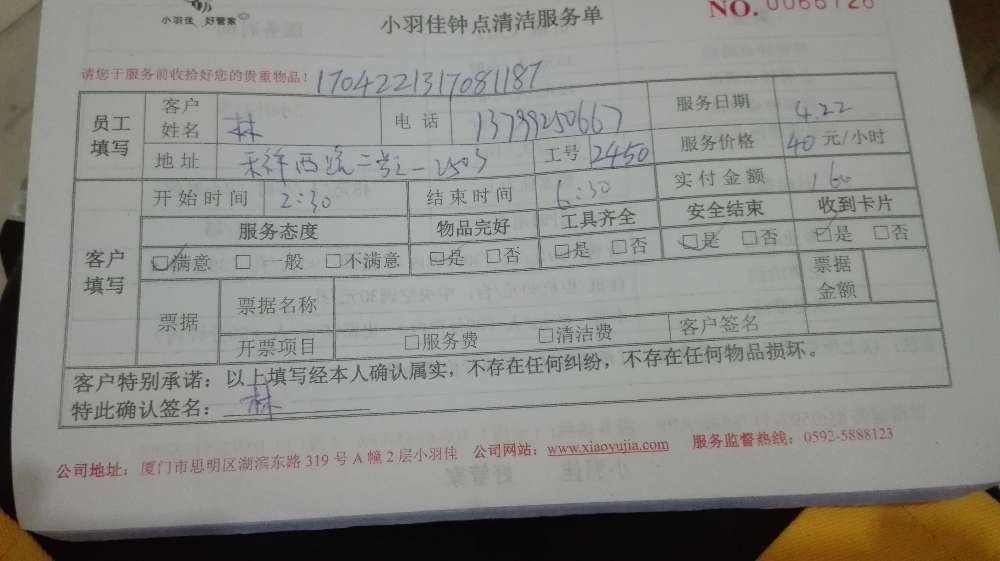 小羽佳 好管家
小羽佳钟点清洁服务单
NO. 0066726
请您于服务前收拾好您的贵重物品! 1704221317081187
员工填写 客户姓名 林 电话 13799250667 服务日期 4.22
地址 天祥西院二号之一2503 工号 2450 服务价格 40 元/小时
客户填写 开始时间 2:30 结束时间 6:30 实付金额 160
服务态度 物品完好 工具齐全 安全结束 收到卡片
☑满意 □ 一般 □不满意 ☑是 □否 ☑是 □否 ☑是 □否 ☑是 □否
票据 票据名称 票据金额
开票项目 □服务费 □清洁费 客户签名
客户特别承诺：以上填写经本人确认属实，不存在任何纠纷，不存在任何物品损坏。
特此确认签名： 林
公司地址：厦门市思明区湖滨东路 319 号 A 幢 2 层小羽佳 公司网站：www.xiaoyujia.com 服务监督热线：0592-5888123
小羽佳 好管家